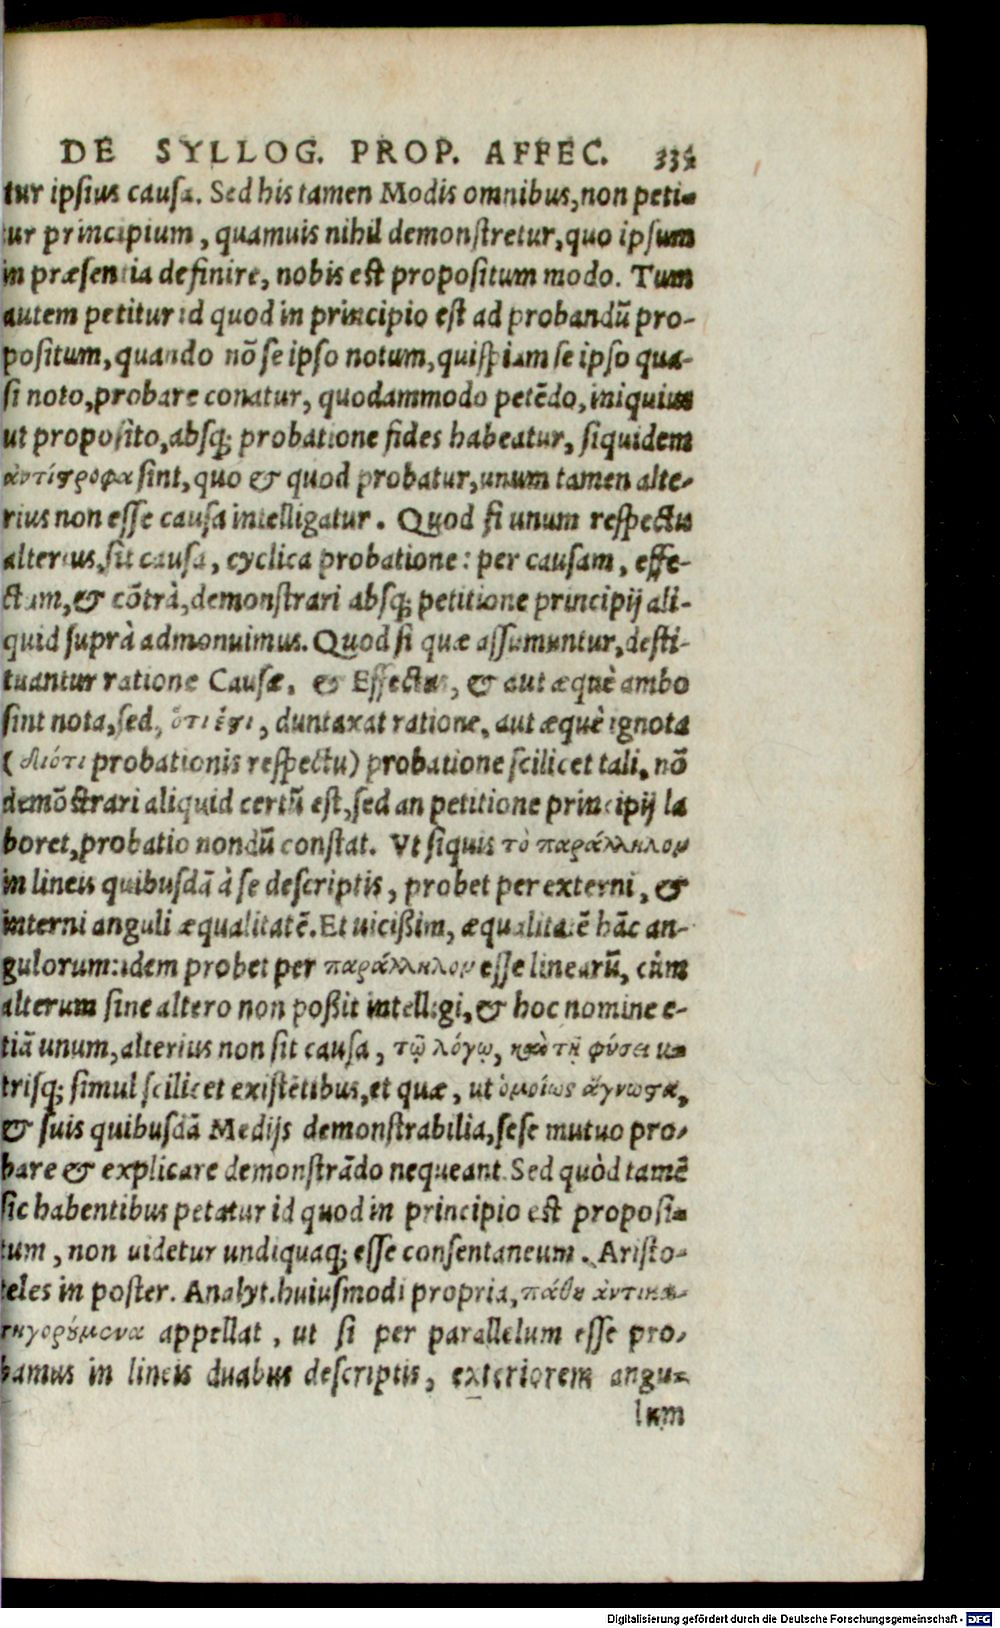 DE SYLLOG. PROP. AFFEC. 335
tur ipsius causa. Sed his tamen Modis omnibus, non peti-
tur principium, quamuis nihil demonstretur, quo ipsum
in præsentia definire, nobis est propositum modo. Tum
autem petitur id quod in principio est ad probandū pro-
positum, quando nō se ipso notum, quispiam se ipso qua-
si noto, probare conatur, quodammodo petēdo, iniquius
ut proposito, absq; probatione fides habeatur, siquidem
ἀντίςροφα sint, quo & quod probatur, unum tamen alte-
rius non esse causa intelligatur. Quod si unum respectu
alterius, sit causa, cyclica probatione: per causam, effe-
ctum, & cōtrà, demonstrari absq; petitione principij ali-
quid suprà admonuimus. Quod si quæ assumuntur, desti-
tuantur ratione Causæ, & Effectus, & aut æquè ambo
sint nota, sed, ὅτι ἔςι, duntaxat ratione, aut æquè ignota
(διότι probationis respectu) probatione scilicet tali, nō
demōstrari aliquid certū est, sed an petitione principij la
boret, probatio nondū constat. Vt siquis τὸ παράλληλον
in lineis quibusdā à se descriptis, probet per externi, &
interni anguli æqualitatē. Et uicißim, æqualitatē hāc an-
gulorum: idem probet per παράλληλον esse linearū, cùm
alterum sine altero non poßit intelligi, & hoc nomine e-
tiā unum, alterius non sit causa, τῷ λόγῳ, καὶ τῇ φύσει u-
trisq; simul scilicet existētibus, et quæ, ut ὁμοίως ἄγνωςα,
& suis quibusdā Medijs demonstrabilia, sese mutuo pro-
bare & explicare demonstrādo nequeant. Sed quòd tamē
sic habentibus petatur id quod in principio est proposi-
tum, non uidetur undiquaq; esse consentaneum. Aristo-
teles in poster. Analyt. huiusmodi propria, πάθη ἀντικα-
τηγορούμενα appellat, ut si per parallelum esse pro-
bamus in lineis duabus descriptis, exteriorem angu-
lum
Digitalisierung gefördert durch die Deutsche Forschungsgemeinschaft - DFG